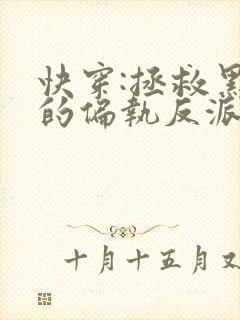 快穿:拯救黑
的偏執反派
十月十五月又